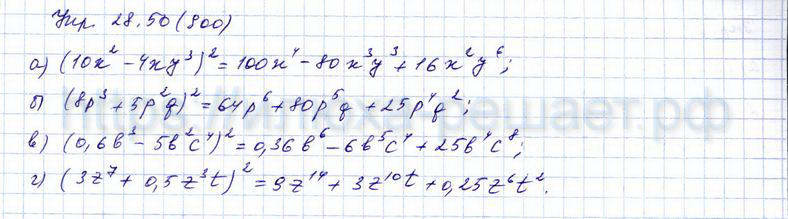 Упр. 28.50 (900)
а) (10x² - 4xy³)² = 100x⁴ - 80x³y³ + 16x²y⁶;
б) (8p³ + 5p²q)² = 64p⁶ + 80p⁵q + 25p⁴q²;
в) (0,6b³ - 5b²c⁴)² = 0,36b⁶ - 6b⁵c⁴ + 25b⁴c⁸;
г) (3z⁷ + 0,5z³t)² = 9z¹⁴ + 3z¹⁰t + 0,25z⁶t².